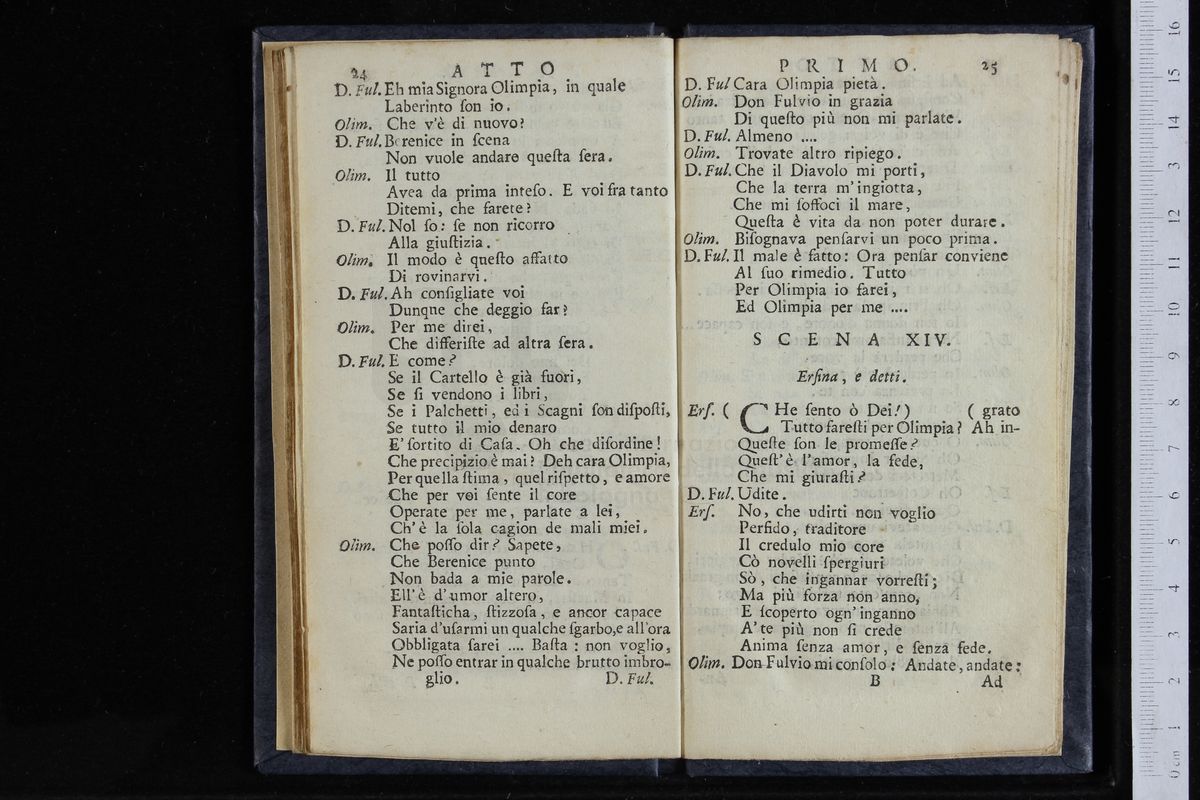 24 ATTO
D. Ful. Eh mia Signora Olimpia, in quale
Laberinto ſon io.
Olim. Che v'è di nuovo?
D. Ful. Berenice in ſcena
Non vuole andare queſta ſera.
Olim. Il tutto
Avea da prima inteſo. E voi fra tanto
Ditemi, che farete?
D. Ful. Nol ſo: ſe non ricorro
Alla giuſtizia.
Olim. Il modo è queſto affatto
Di rovinarvi.
D. Ful. Ah conſigliate voi
Dunqne che deggio far?
Olim. Per me direi,
Che differiſte ad altra ſera.
D. Ful. E come?
Se il Cartello è già fuori,
Se ſi vendono i libri,
Se i Palchetti, ed i Scagni ſon diſpoſti,
Se tutto il mio denaro
E' ſortito di Caſa. Oh che diſordine!
Che precipizio è mai? Deh cara Olimpia,
Per quella ſtima, quel riſpetto, e amore
Che per voi ſente il core
Operate per me, parlate a lei,
Ch'è la ſola cagion de mali miei.
Olim. Che poſſo dir? Sapete,
Che Berenice punto
Non bada a mie parole.
Ell'è d'umor altero,
Fantaſticha, ſtizzoſa, e ancor capace
Saria d'uſarmi un qualche ſgarbo,e all'ora
Obbligata ſarei .... Baſta: non voglio,
Ne poſſo entrar in qualche brutto imbro-
glio. D. Ful.
PRIMO. 25
D. Ful Cara Olimpia pietà.
Olim. Don Fulvio in grazia
Di queſto più non mi parlate.
D. Ful. Almeno ....
Olim. Trovate altro ripiego.
D. Ful. Che il Diavolo mi porti,
Che la terra m'ingiotta,
Che mi ſoffoci il mare,
Queſta è vita da non poter durare.
Olim. Biſognava penſarvi un poco prima.
D. Ful. Il male è fatto: Ora penſar conviene
Al ſuo rimedio. Tutto
Per Olimpia io farei,
Ed Olimpia per me ....
SCENA XIV.
Erſina, e detti.
Erſ. ( CHe ſento ò Dei!) ( grato
Tutto fareſti per Olimpia? Ah in-
Queſte ſon le promeſſe?
Queſt'è l'amor, la fede,
Che mi giuraſti?
D. Ful. Udite.
Erſ. No, che udirti non voglio
Perfido, traditore
Il credulo mio core
Cò novelli ſpergiuri
Sò, che ingannar vorreſti;
Ma più forza non anno,
E ſcoperto ogn'inganno
A'te più non ſi crede
Anima ſenza amor, e ſenza fede.
Olim. Don Fulvio mi conſolo: Andate, andate:
B Ad
0 cm 1 2 3 4 5 6 7 8 9 10 11 12 13 14 15 16